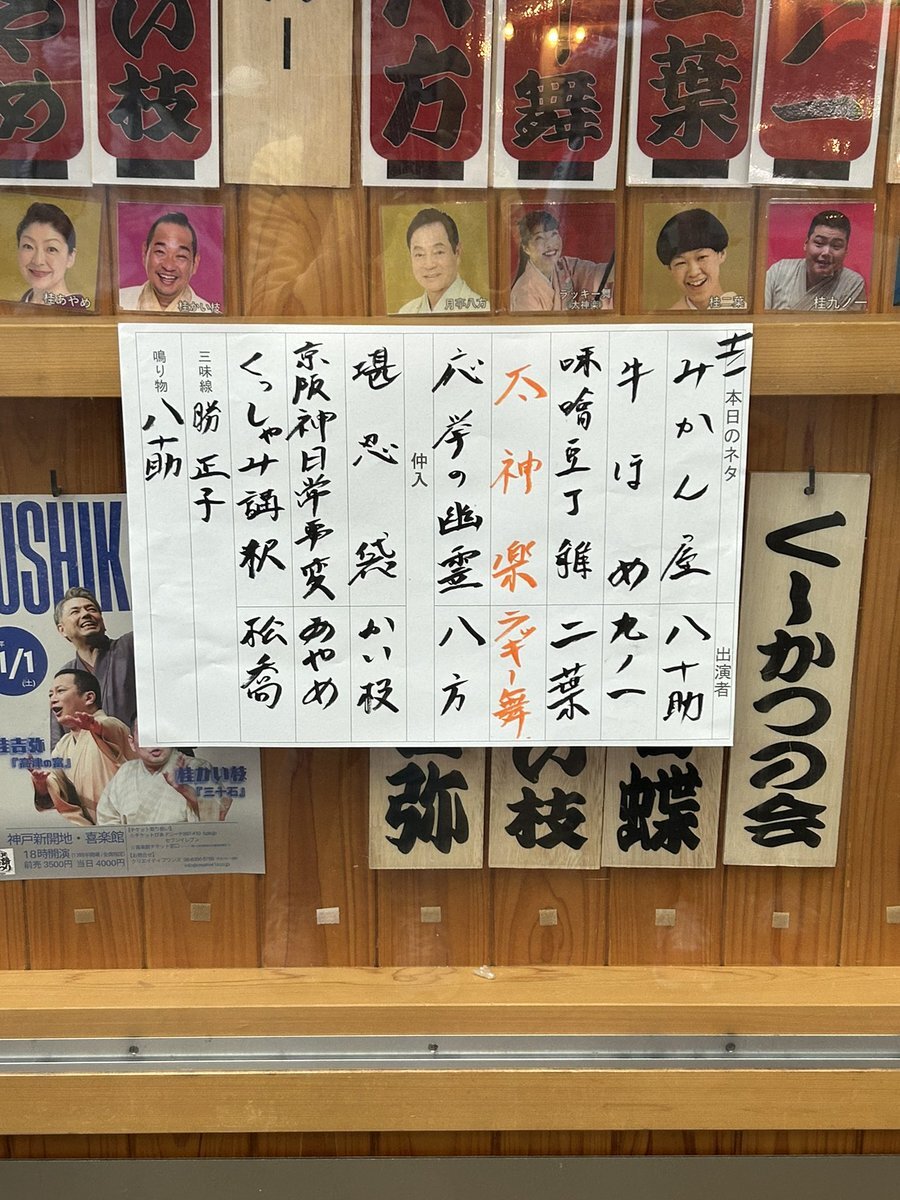 八方
舞
二葉
ノ一
い枝
やめ
桂あやめ
桂かい枝
月亭八方
ラッキー舞
太神楽
桂二葉
桂九ノ一
本日のネタ
出演者
みかん屋 八十助
牛ほめ 九ノ一
味噌豆丁稚 二葉
太神楽 ラッキー舞
応挙の幽霊 八方
仲入
堪忍袋 かい枝
京阪神日常事変 あやめ
くっしゃみ講釈 松喬
三味線 勝正子
鳴り物 八十助
く~かつの会
蝶
い枝
弥
USHIK
1/1
(土)
桂吉弥
『高津の富』
桂かい枝
『三十石』
神戸新開地・喜楽館
18時開演
前売 3500円 当日 4000円